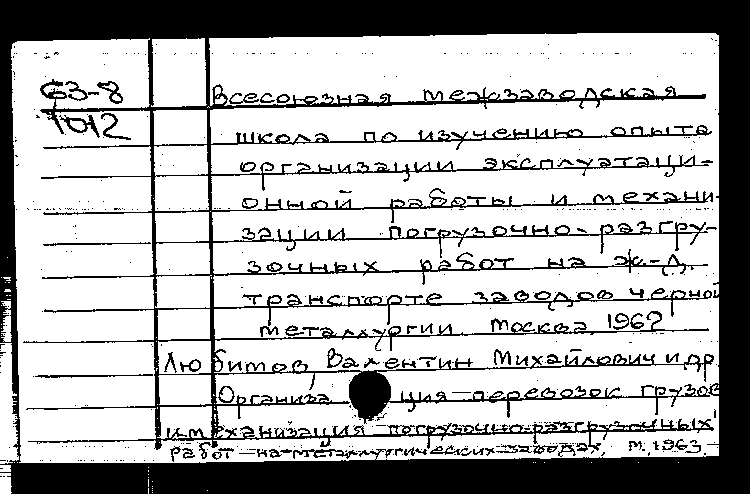 63-8
1012
Всесоюзная межзаводская
школа по изучению опыта
организации эксплуатаци-
онной работы и механи-
зации погрузочно-разгру-
зочных работ на ж-д.
транспорте заводов черной
металлургии. Москва, 1962
Любимов, Валентин Михайлович и др
Организация перевозок грузов
и механизация погрузочно-разгрузочных
работ на металлургических заводах. М. 1963.